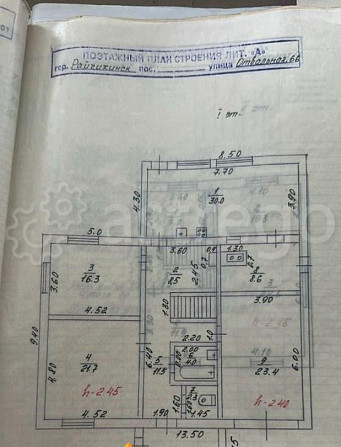 ПОЭТАЖНЫЙ ПЛАН СТРОЕНИЯ ЛИТ. "А"
гор. Райчихинск пос. улица Отвальная, 66
I эт.
8.50
7.70
4.30
1
30.0
3.90
5.0
3.60
1.30
3
16.3
3.60
2
8.5
2.45
0.7
8
8.6
4.52
3.90
1.30
9.40
h-2.45
2.20
1.0
6.40
2.00
4
21.7
5
11.5
9
23.4
6.00
4.80
h-2.45
h-2.40
4.52
1.90
1.60
1.45
13.50